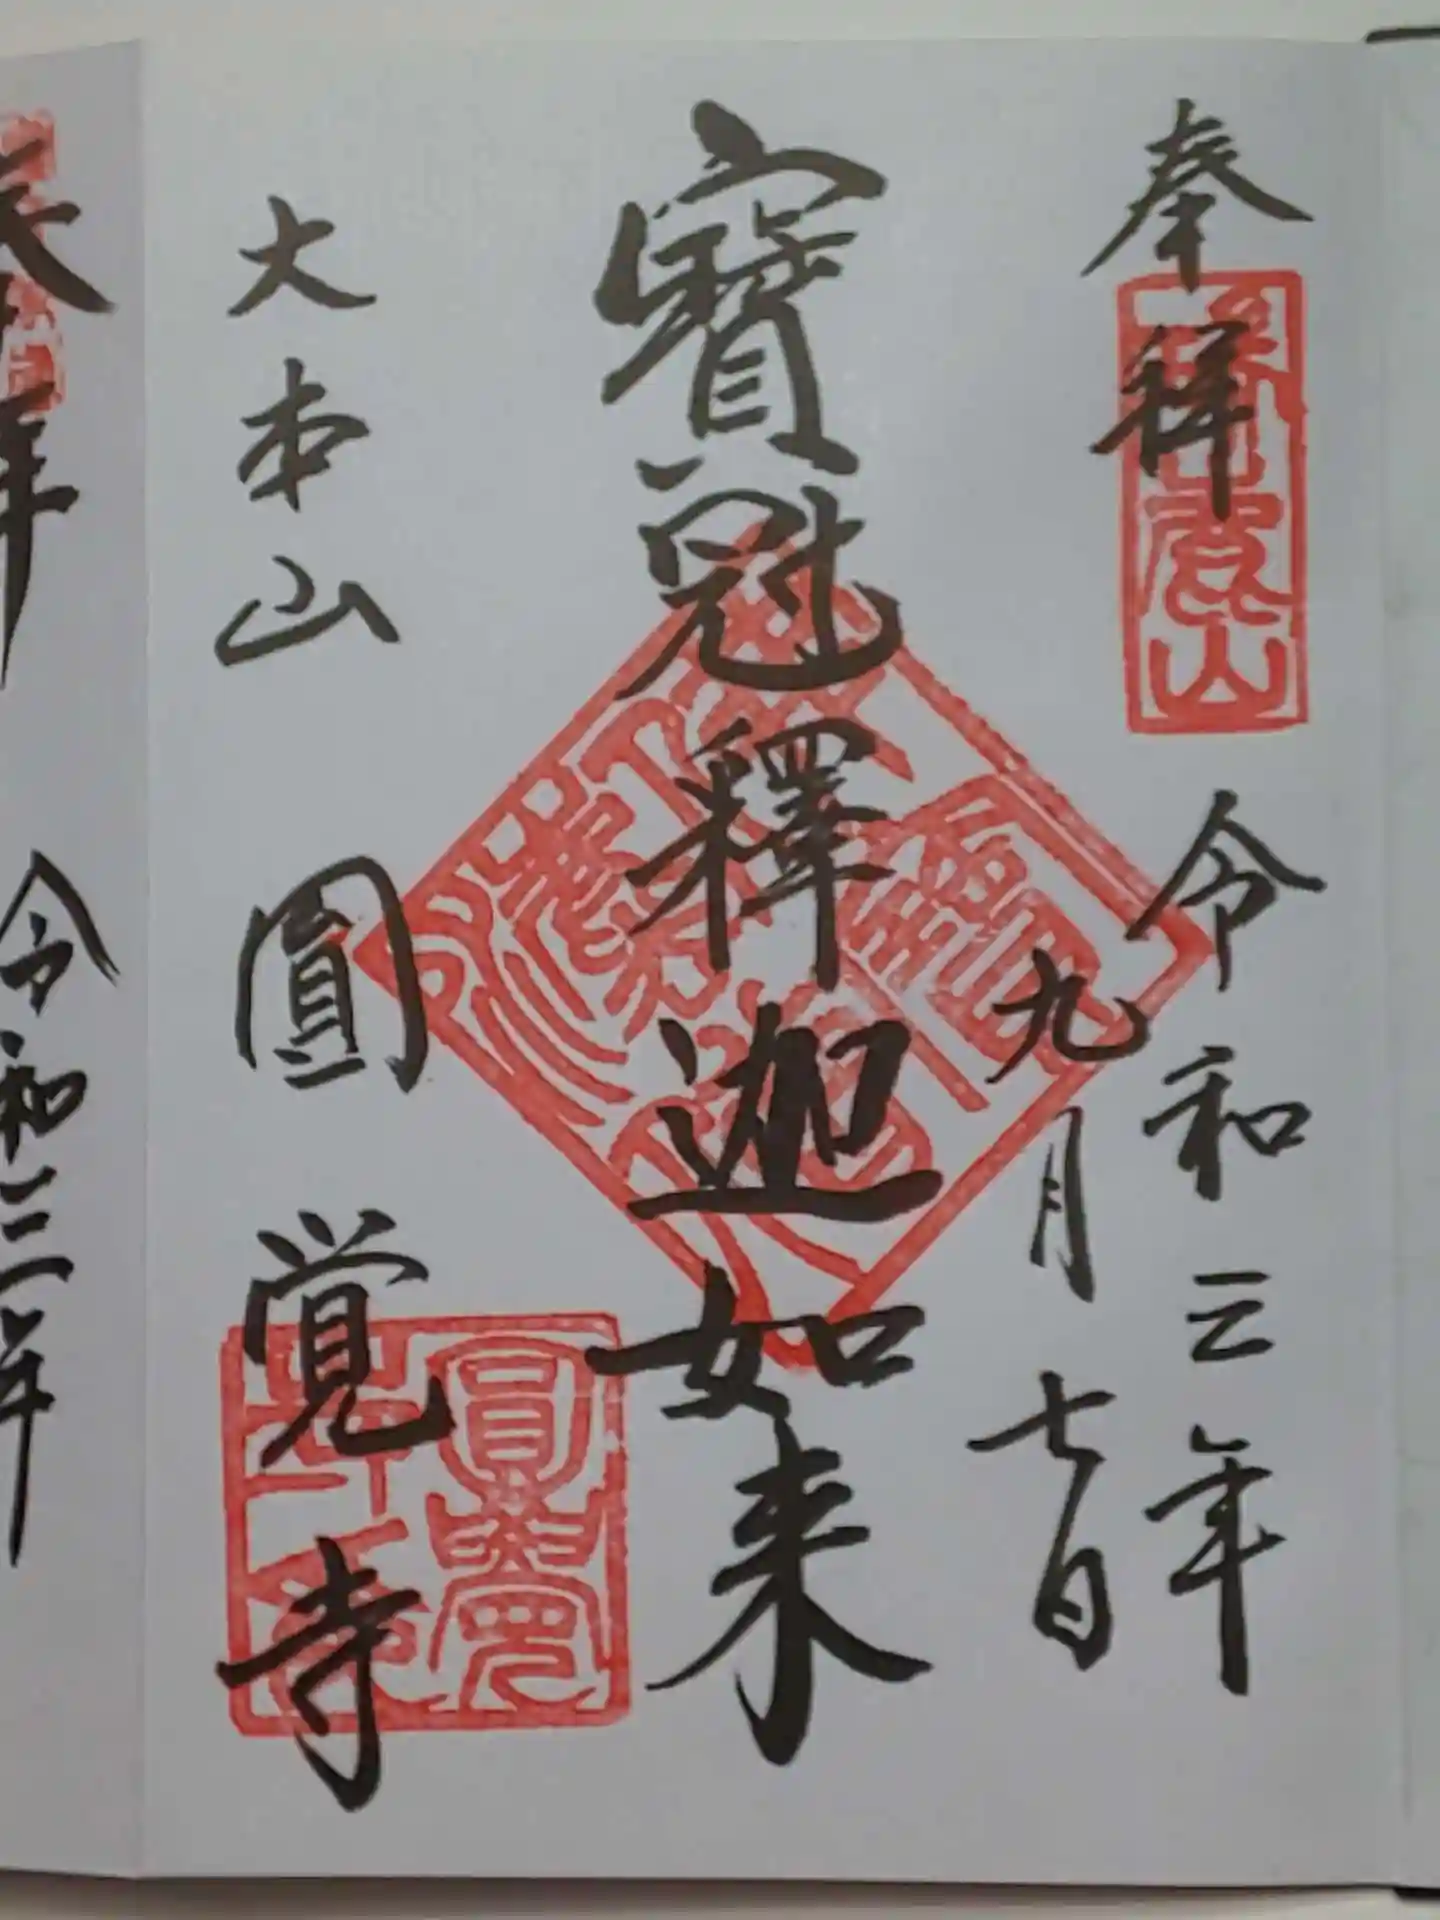 奉拝
令和三年
九月七日
寶冠釋迦如来
大本山
圓覚寺
令和三年